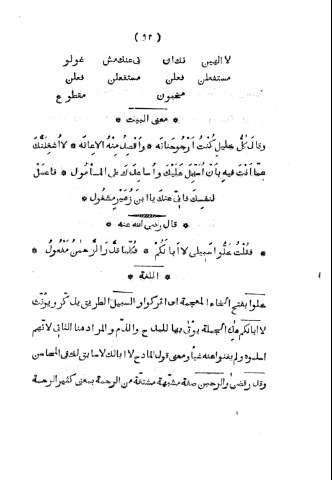 ( ٩٢ )
لا الهين نك ان نى عنك مش غولو
مستفعلن فعلن مستفعلن فعلن
مخبون مقطوع
* معنى البيت *
وقال كل خليل كنت أرجو حنانه * واقصد منه الاعانة * لا اشغلنك
عما أنت فيه بأن اسهل عليك واساعدك على المأمول * فاعمل
لنفسك فانى عنك يا ابن زهير مشغول *
* قال رضى الله عنه *
* فقلت خلوا سبيلى لا ابا لكم * فكل ما قدر الرحمن مفعول *
* اللغة *
خلوا بفتح الخاء المعجمة اى اتركوا و السبيل الطريق يذكر ويؤنث
لا ابا لكم هذه الجملة يؤتى بها للمدح والذم و المراد هنا الثانى لانهم
اسلموه ولم يغنوا عنه شيأ ومعنى قول المادح لا ابا لك لا سابق لك فى المحاسن
وقدر قضى والرحمن صفة مشبهة مشتقة من الرحمة بمعنى كثير الرحمة